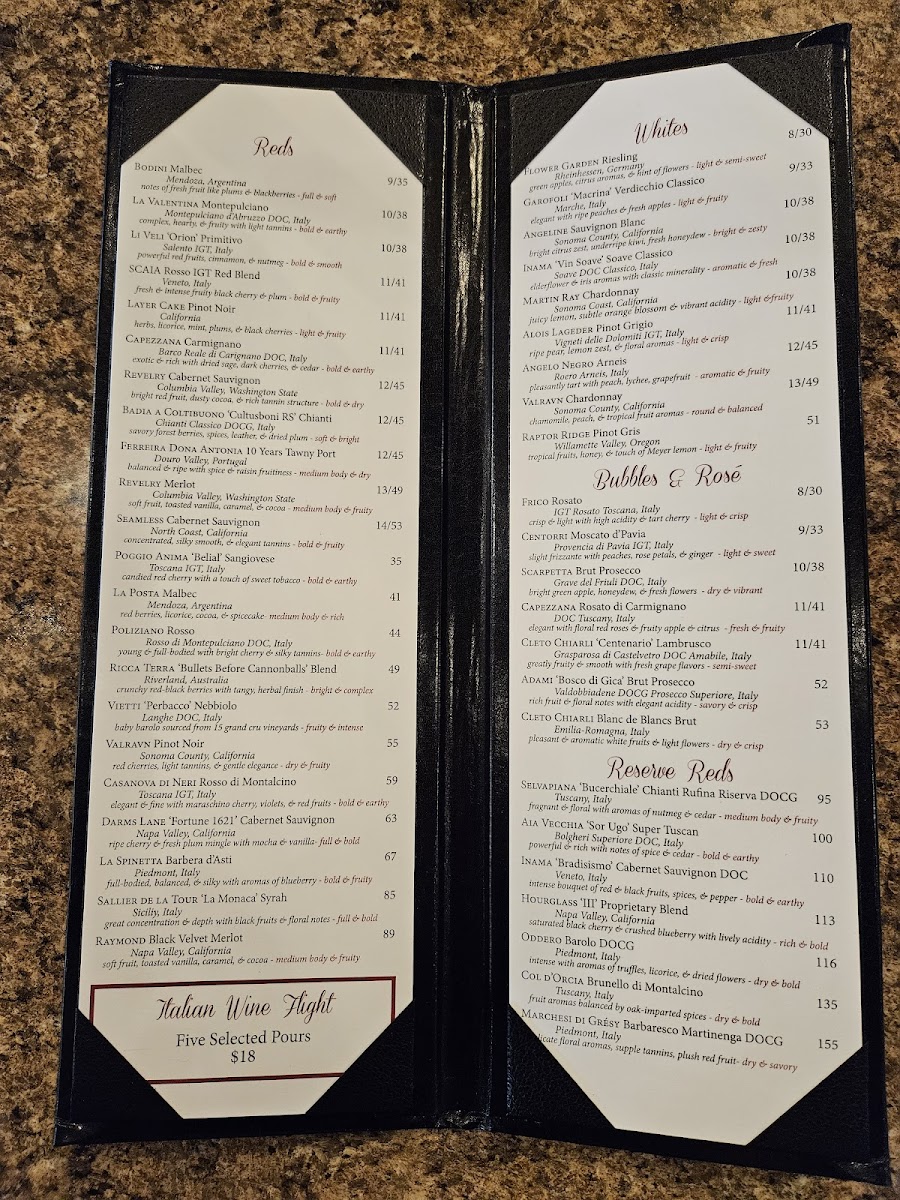 Reds
BODINI Malbec 9/35
Mendoza, Argentina
notes of fresh fruit like plums & blackberries - full & soft
LA VALENTINA Montepulciano 10/38
Montepulciano d'Abruzzo DOC, Italy
complex, hearty, & fruity with light tannins - bold & earthy
LI VELI 'Orion' Primitivo 10/38
Salento IGT, Italy
powerful red fruits, cinnamon, & nutmeg - bold & smooth
SCAIA Rosso IGT Red Blend 11/41
Veneto, Italy
fresh & intense fruity black cherry & plum - bold & fruity
LAYER CAKE Pinot Noir 11/41
California
herbs, licorice, mint, plums, & black cherries - light & fruity
CAPEZZANA Carmignano 11/41
Barco Reale di Carignano DOC, Italy
exotic & rich with dried sage, dark cherries, & cedar - bold & earthy
REVELRY Cabernet Sauvignon 12/45
Columbia Valley, Washington State
bright red fruit, dusty cocoa, & rich tannin structure - bold & dry
BADIA A COLTIBUONO 'Cultusboni RS' Chianti 12/45
Chianti Classico DOCG, Italy
savory forest berries, spices, leather, & dried plum - soft & bright
FERREIRA DONA ANTONIA 10 Years Tawny Port 12/45
Douro Valley, Portugal
balanced & ripe with spice & raisin fruitiness - medium body & dry
REVELRY Merlot 13/49
Columbia Valley, Washington State
soft fruit, toasted vanilla, caramel, & cocoa - medium body & fruity
SEAMLESS Cabernet Sauvignon 14/53
North Coast, California
concentrated, silky smooth, & elegant tannins - bold & fruity
POGGIO ANIMA 'Belial' Sangiovese 35
Toscana IGT, Italy
candied red cherry with a touch of sweet tobacco - bold & earthy
LA POSTA Malbec 41
Mendoza, Argentina
red berries, licorice, cocoa, & spicecake- medium body & rich
POLIZIANO Rosso 44
Rosso di Montepulciano DOC, Italy
young & full-bodied with bright cherry & silky tannins- bold & earthy
RICCA TERRA 'Bullets Before Cannonballs' Blend 49
Riverland, Australia
crunchy red-black berries with tangy, herbal finish - bright & complex
VIETTI 'Perbacco' Nebbiolo 52
Langhe DOC, Italy
baby barolo sourced from 15 grand cru vineyards - fruity & intense
VALRAVN Pinot Noir 55
Sonoma County, California
red cherries, light tannins, & gentle elegance - dry & fruity
CASANOVA DI NERI Rosso di Montalcino 59
Toscana IGT, Italy
elegant & fine with maraschino cherry, violets, & red fruits - bold & earthy
DARMS LANE 'Fortune 1621' Cabernet Sauvignon 63
Napa Valley, California
ripe cherry & fresh plum mingle with mocha & vanilla- full & bold
LA SPINETTA Barbera d'Asti 67
Piedmont, Italy
full-bodied, balanced, & silky with aromas of blueberry - bold & fruity
SALLIER DE LA TOUR 'La Monaca' Syrah 85
Siciliy, Italy
great concentration & depth with black fruits & floral notes - full & bold
RAYMOND Black Velvet Merlot 89
Napa Valley, California
soft fruit, toasted vanilla, caramel, & cocoa - medium body & fruity
Italian Wine Flight
Five Selected Pours
$18
Whites
FLOWER GARDEN Riesling 8/30
Rheinhessen, Germany
green apples, citrus aromas, & hint of flowers - light & semi-sweet
GAROFOLI 'Macrina' Verdicchio Classico 9/33
Marche, Italy
elegant with ripe peaches & fresh apples - light & fruity
ANGELINE Sauvignon Blanc 10/38
Sonoma County, California
bright citrus zest, underripe kiwi, fresh honeydew - bright & zesty
INAMA 'Vin Soave' Soave Classico 10/38
Soave DOC Classico, Italy
elderflower & iris aromas with classic minerality - aromatic & fresh
MARTIN RAY Chardonnay 10/38
Sonoma Coast, California
juicy lemon, subtle orange blossom & vibrant acidity - light &fruity
ALOIS LAGEDER Pinot Grigio 11/41
Vigneti delle Dolomiti IGT, Italy
ripe pear, lemon zest, & floral aromas - light & crisp
ANGELO NEGRO Arneis 12/45
Roero Arneis, Italy
pleasantly tart with peach, lychee, grapefruit - aromatic & fruity
VALRAVN Chardonnay 13/49
Sonoma County, California
chamomile, peach, & tropical fruit aromas - round & balanced
RAPTOR RIDGE Pinot Gris 51
Willamette Valley, Oregon
tropical fruits, honey, & touch of Meyer lemon - light & fruity
Bubbles & Rosé
FRICO Rosato 8/30
IGT Rosato Toscana, Italy
crisp & light with high acidity & tart cherry - light & crisp
CENTORRI Moscato d'Pavia 9/33
Provencia di Pavia IGT, Italy
slight frizzante with peaches, rose petals, & ginger - light & sweet
SCARPETTA Brut Prosecco 10/38
Grave del Friuli DOC, Italy
bright green apple, honeydew, & fresh flowers - dry & vibrant
CAPEZZANA Rosato di Carmignano 11/41
DOC Tuscany, Italy
elegant with floral red roses & fruity apple & citrus - fresh & fruity
CLETO CHIARLI 'Centenario' Lambrusco 11/41
Grasparosa di Castelvetro DOC Amabile, Italy
greatly fruity & smooth with fresh grape flavors - semi-sweet
ADAMI 'Bosco di Gica' Brut Prosecco 52
Valdobbiadene DOCG Prosecco Superiore, Italy
rich fruit & floral notes with elegant acidity - savory & crisp
CLETO CHIARLI Blanc de Blancs Brut 53
Emilia-Romagna, Italy
pleasant & aromatic white fruits & light flowers - dry & crisp
Reserve Reds
SELVAPIANA 'Bucerchiale' Chianti Rufina Riserva DOCG 95
Tuscany, Italy
fragrant & floral with aromas of nutmeg & cedar - medium body & fruity
AIA VECCHIA 'Sor Ugo' Super Tuscan 100
Bolgheri Superiore DOC, Italy
powerful & rich with notes of spice & cedar - bold & earthy
INAMA 'Bradisismo' Cabernet Sauvignon DOC 110
Veneto, Italy
intense bouquet of red & black fruits, spices, & pepper - bold & earthy
HOURGLASS 'III' Proprietary Blend 113
Napa Valley, California
saturated black cherry & crushed blueberry with lively acidity - rich & bold
ODDERO Barolo DOCG 116
Piedmont, Italy
intense with aromas of truffles, licorice, & dried flowers - dry & bold
COL D'ORCIA Brunello di Montalcino 135
Tuscany, Italy
fruit aromas balanced by oak-imparted spices - dry & bold
MARCHESI DI GRÉSY Barbaresco Martinenga DOCG 155
Piedmont, Italy
licate floral aromas, supple tannins, plush red fruit- dry & savory